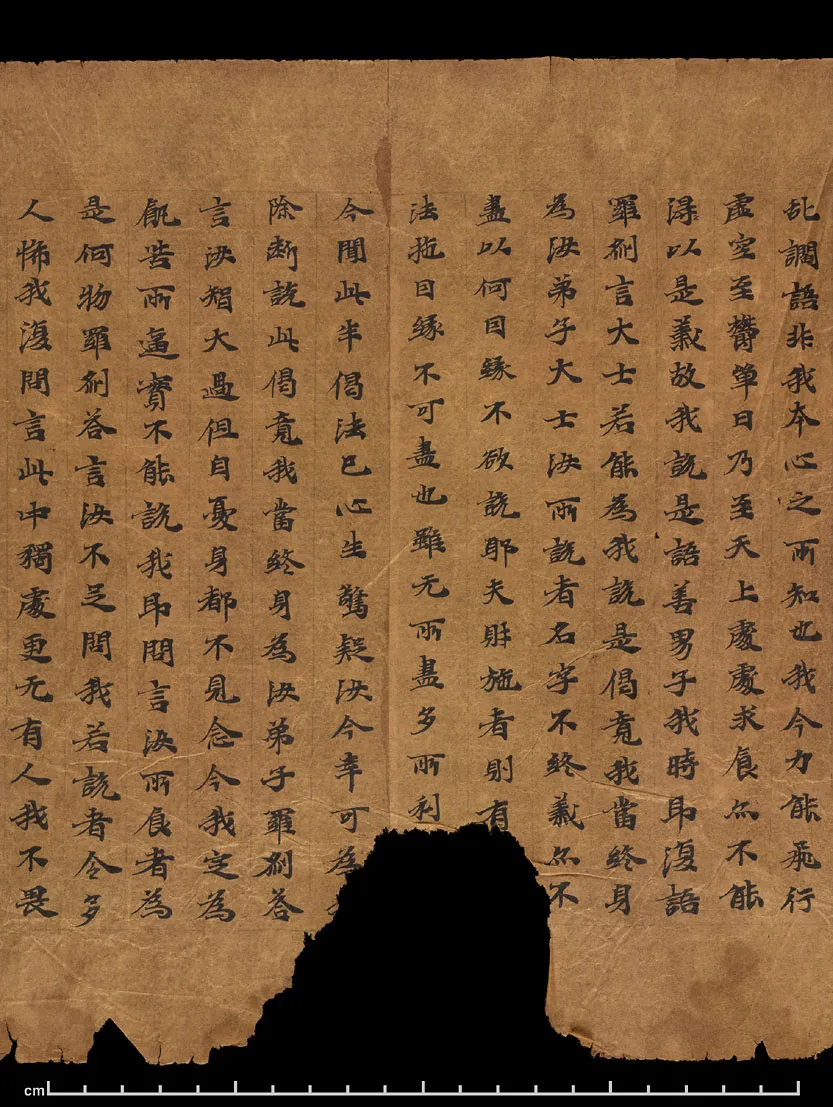 乱調語非我本心之所知也我今力能飛行
虛空至欝單曰乃至天上處處求食亦不能
得以是義故我說是語善男子我時即復語
羅刹言大士若能為我說是偈竟我當終身
為汝弟子大士汝所說者名字不終義亦不
盡以何因緣不欲說耶夫財施者則有
法施因緣不可盡也雖无所盡多所利
今聞此半偈法已心生驚疑汝今幸可為
除斷說此偈竟我當終身為汝弟子羅刹答
言汝智大過但自憂身都不見念今我定為
飢苦所逼實不能說我即問言汝所食者為
是何物羅刹答言汝不足問我若說者令多
人怖我復問言此中獨處更无有人我不畏
cm